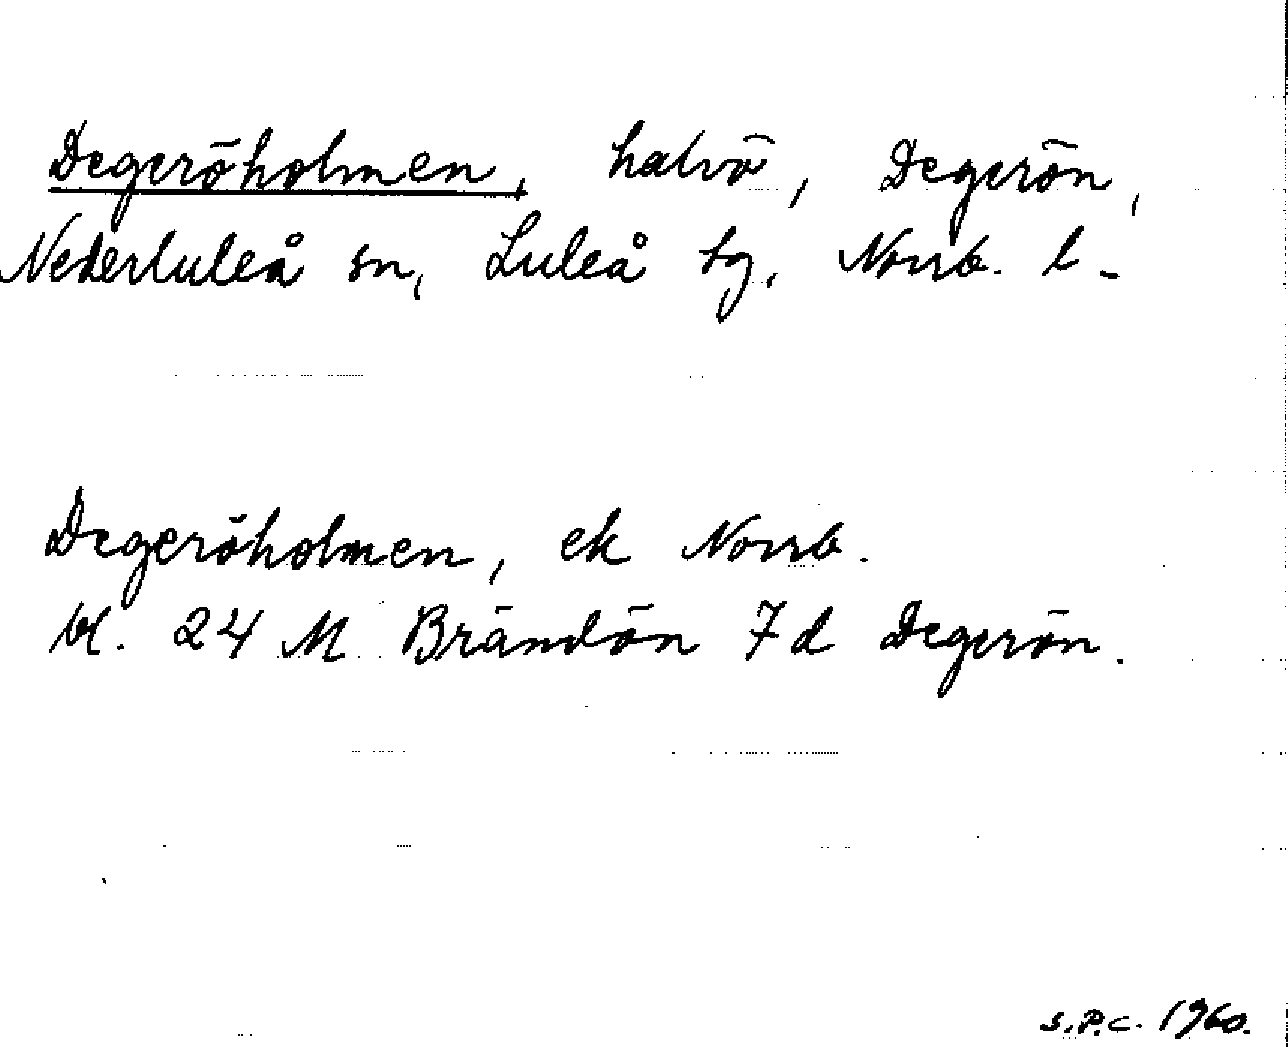 Degeröholmen, halvö, Degerön,
Nederluleå sn, Luleå tg, Norrb. l.
Degeröholmen, ek Norrb.
bl. 24 M Brändön 7d Degerön.
S.P.C. 1960.